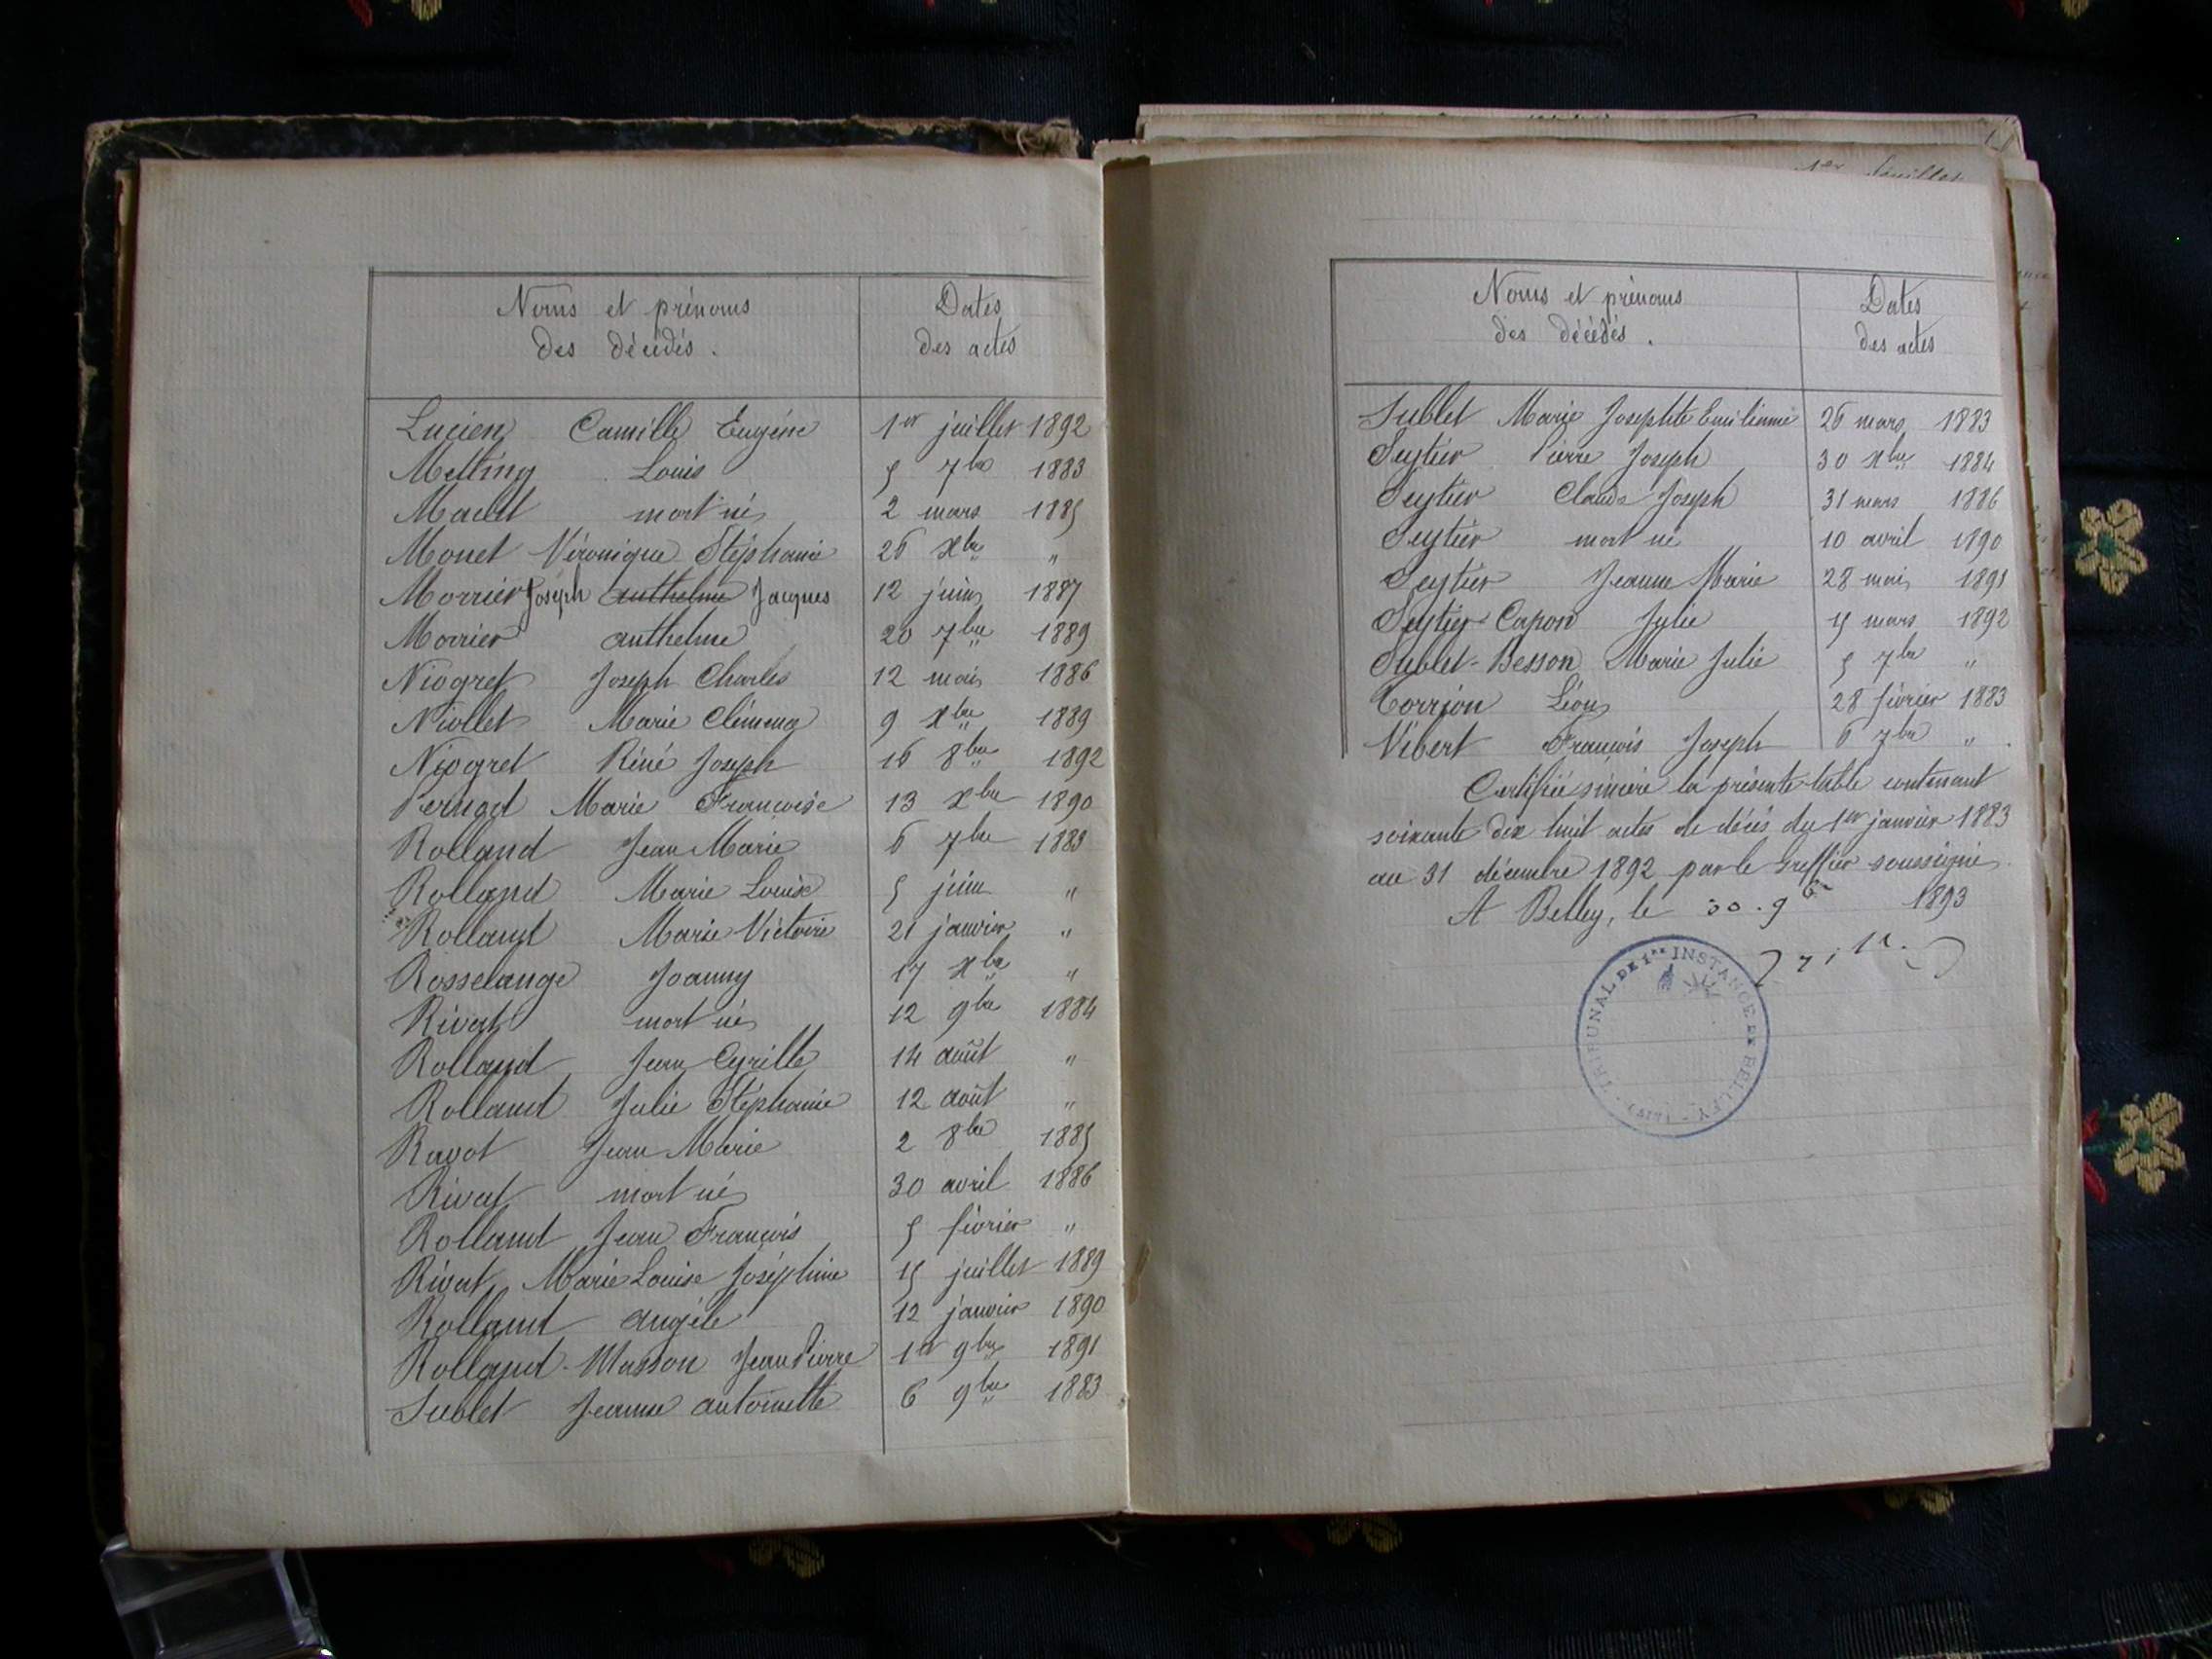 Noms et prénoms
des décédés.
Dates
des actes
Lucien Camille Eugène 1er juillet 1892
Metting Louis 5 7bre 1883
Maclet mort né 2 mars 1885
Monet Véronique Stéphanie 26 Xbre "
Morrier Joseph Anthelme Jacques 12 juin 1887
Morrier Anthelme 20 7bre 1889
Niogret Joseph Charles 12 mai 1886
Niollet Marie Clémence 9 Xbre 1889
Niogret Réné Joseph 16 8bre 1892
Marie Françoise 13 Xbre 1890
Rolland Jean Marie 6 7bre 1883
Rolland Marie Louise 5 juin "
Rolland Marie Victoire 21 janvier "
Rosselange Joanny 17 Xbre "
Rivat mort né 12 9bre 1884
Rolland Jean Cyrille 14 août "
Rolland Julie Stéphanie 12 août "
Ravot Jean Marie 2 8bre 1885
Rivat mort né 30 avril 1886
Rolland Jean François 5 février "
Rivat Marie Louise Joséphine 15 juillet 1889
Rolland Angèle 12 janvier 1890
Rolland-Masson Jean Pierre 1er 9bre 1891
Sublet Jeanne Antoinette 6 9bre 1883
Noms et prénoms
des décédés.
Dates
des actes
Sublet Marie Josephte Emilienne 26 mars 1883
Seytier Pierre Joseph 30 Xbre 1884
Seytier Claude Joseph 31 mars 1886
Seytier mort né 10 avril 1890
Seytier Jeanne Marie 28 mai 1891
Seytier-Capon Julie 15 mars 1892
Sublet-Besson Marie Julie 5 7bre "
Torrion Léon 28 février 1883
Vibert François Joseph 6 7bre "
Certifiée sincère la présente table contenant
soixante dix huit actes de décès du 1er janvier 1883
au 31 décembre 1892 par le Greffier soussigné.
A Belley, le 30 . 9bre 1893
TRIBUNAL DE 1ère INSTANCE DE BELLEY